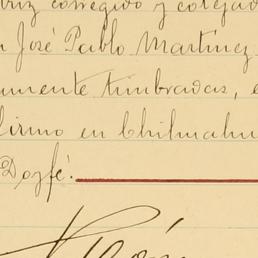 corregido y cotejad
José Pablo Martínez
mente timbradas, e
firmo en Chilmahu
Doy fé: